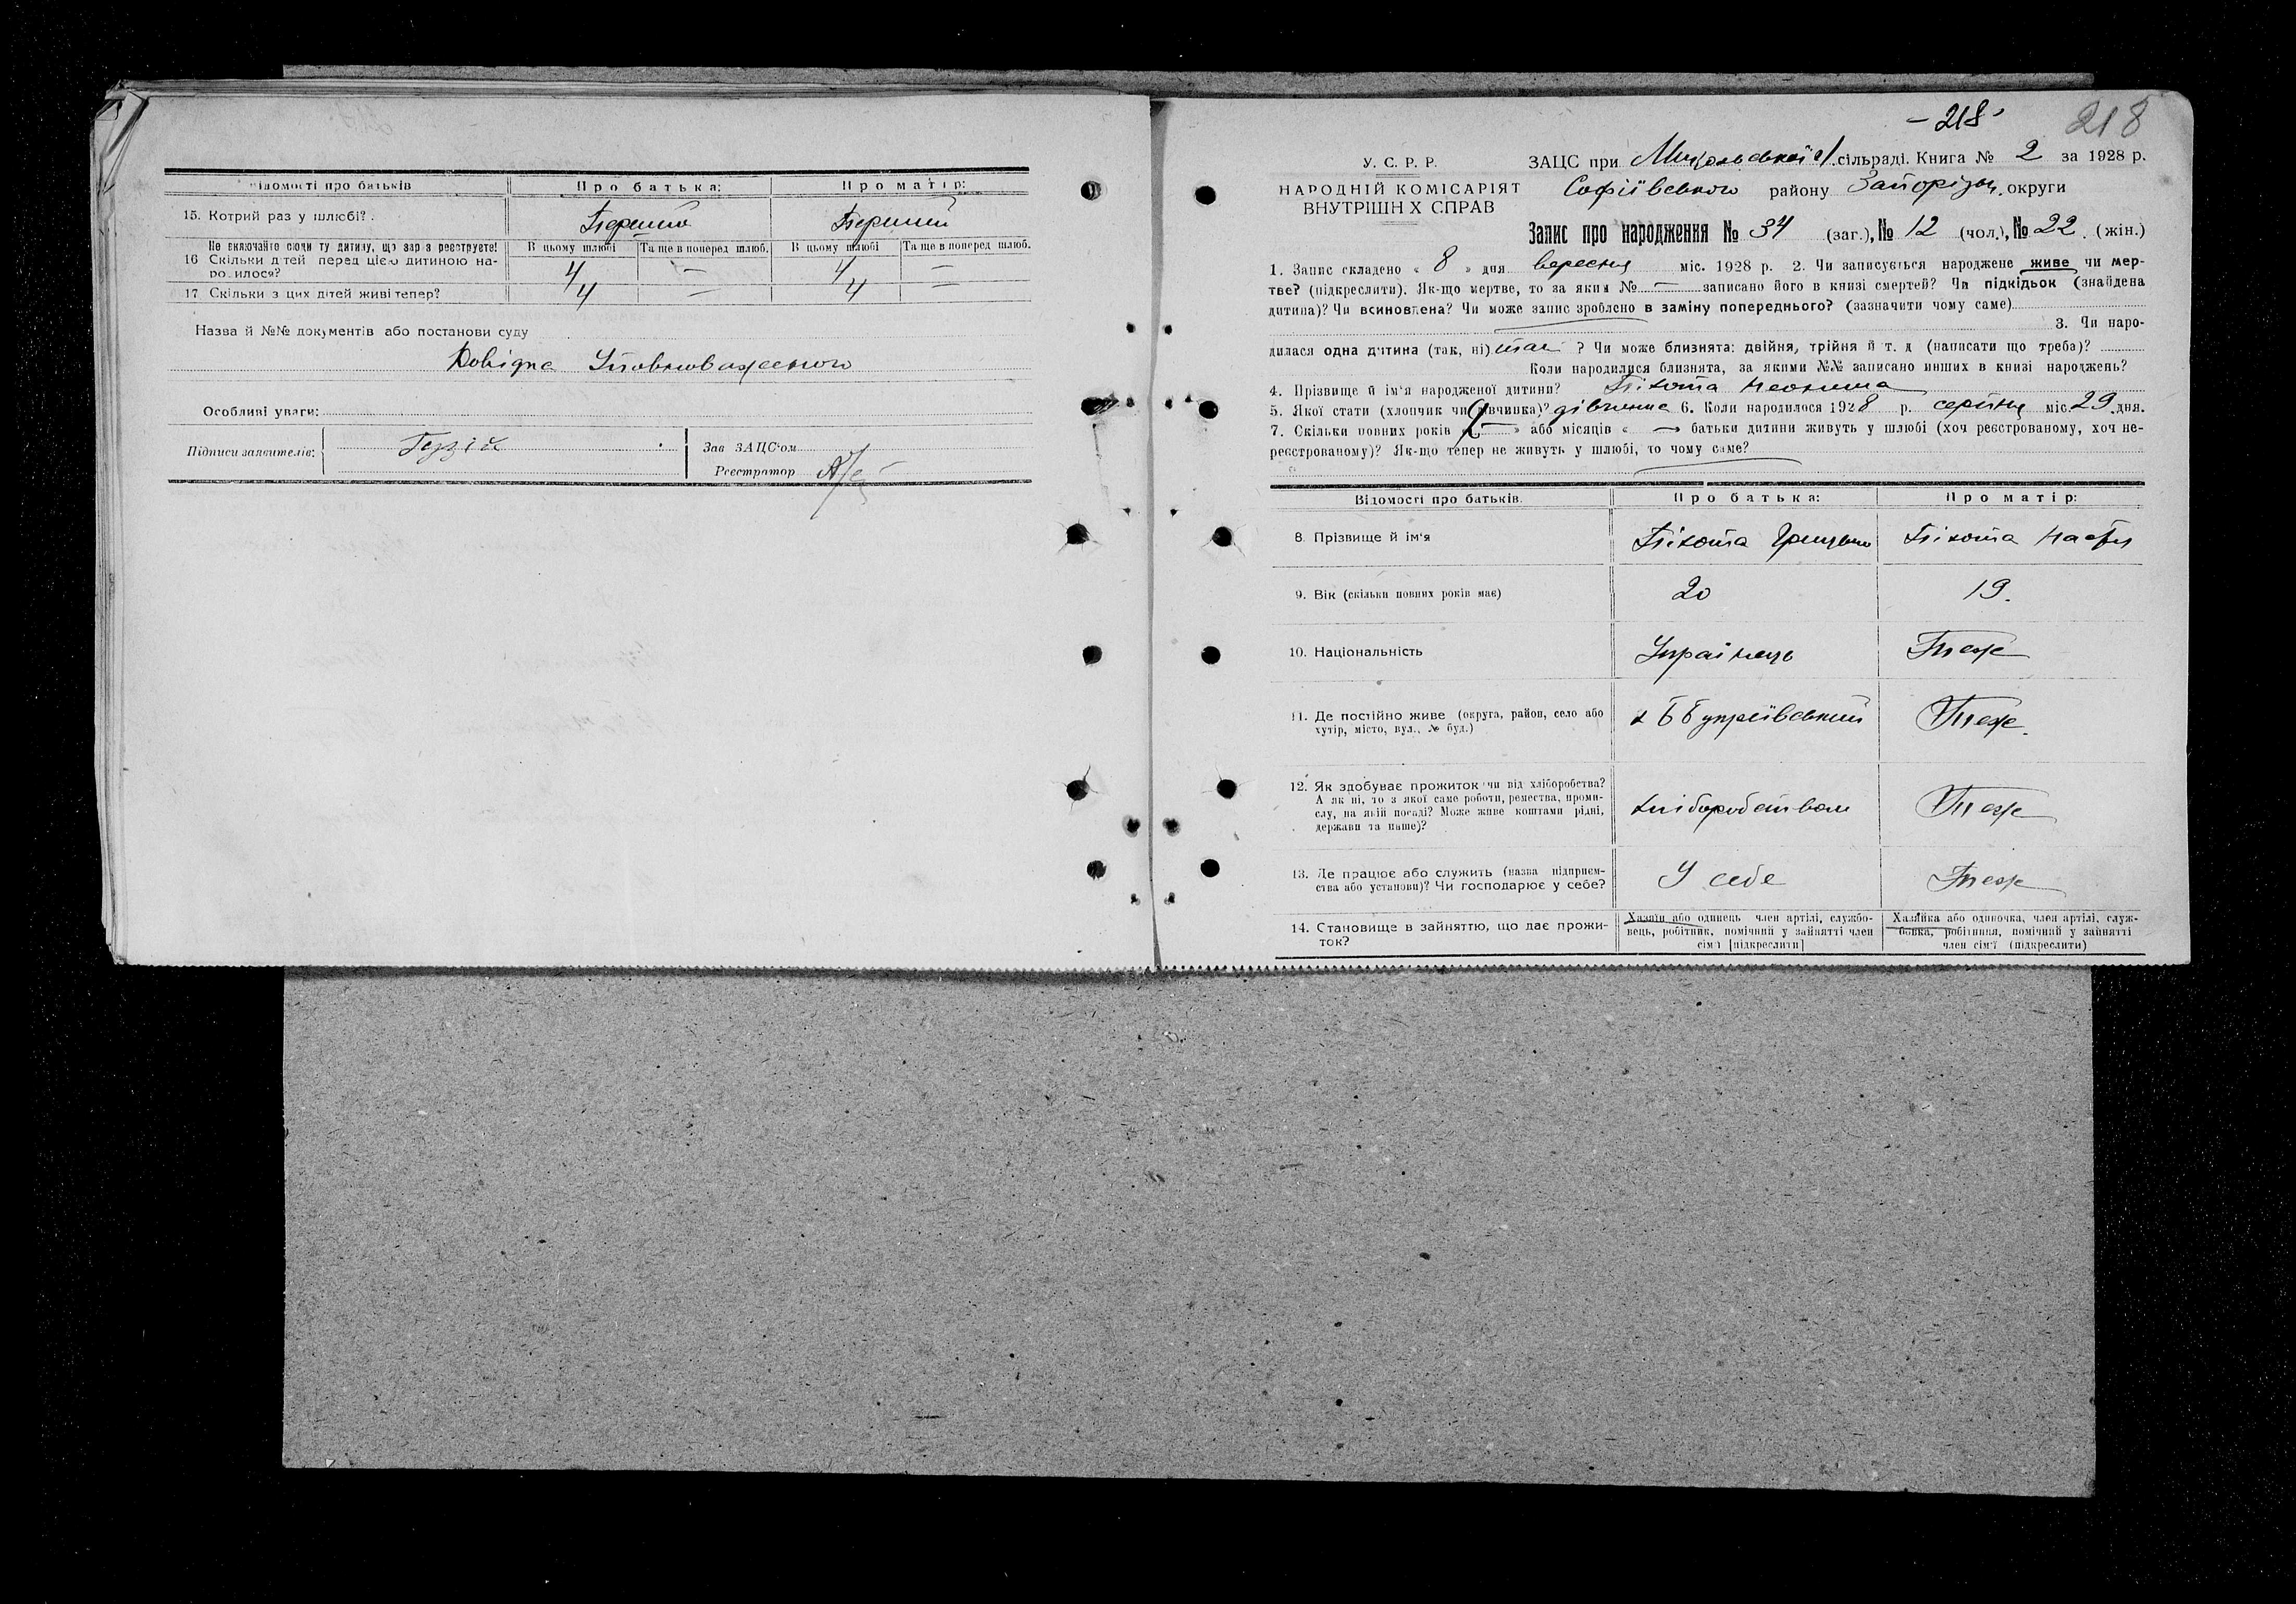 Відомості про батьків Про батька: Про матір:
15. Котрий раз у шлюбі? Перший Перший
Не включайте сюди ту дитину, що зараз реєструєте! В цьому шлюбі Та ще в поперед. шлюб. В цьому шлюбі Та ще в поперед. шлюб.
16 Скільки дітей перед цією дитиною на-
родилося? 4 — 4 —
17 Скільки з цих дітей живі тепер? 4 — 4 —
Назва й №№ документів або постанови суду
Довідка Уповноваженого
Особливі уваги:
Підписи заявителів: Зав ЗАЦС'ом
Реєстратор
- 218 218
У. С. Р. Р.
НАРОДНІЙ КОМІСАРІЯТ
ВНУТРІШН Х СПРАВ
ЗАЦС при сільраді. Книга № 2 за 1928 р.
Софіївського району Запорізьк. округи
Запис про народження № 34 (заг.), № 12 (чол.), № 22. (жін.)
1. Запис складено « 8 » дня вересня міс. 1928 р. 2. Чи записується народжене живе чи мер-
тве? (підкреслити). Як-що мертве, то за яким № — записано його в книзі смертей? Чи підкідьок (знайдена
дитина)? Чи всиновлена? Чи може запис зроблено в заміну попереднього? (зазначити чому саме)
3. Чи наро-
дилася одна дитина (так, ні) так ? Чи може близнята: двійня, трійня й т. д (написати що треба)?
Коли народилися близнята, за якими №№ записано инших в книзі народжень?
4. Прізвище й ім'я народженої дитини? Піхота
5. Якої стати (хлопчик чи дівчинка)? дівчинка 6. Коли народилося 1928 р. серпня міс. 29 дня.
7. Скільки повних років « — » або місяців « — » батьки дитини живуть у шлюбі (хоч реєстрованому, хоч не-
реєстрованому)? Як-що тепер не живуть у шлюбі, то чому саме?
Відомості про батьків. Про батька: Про матір:
8. Прізвище й ім'я Піхота Грицько Піхота Настя
9. Вік (скільки повних років має) 20 19.
10. Національність Українець Теж
11. Де постійно живе (округа, район, село або
хутір, місто, вул., № буд.) Теж.
12. Як здобуває прожиток чи від хліборобства?
А як ні, то з якої саме роботи, ремества, проми-
слу, на якій посаді? Може живе коштами рідні,
держави та инше)? хліборобством Теж
13. Де працює або служить (назва підприєм-
ства або установи)? Чи господарює у себе? У себе Теж
14. Становище в зайняттю, що дає прожи-
ток?
Хазяїн або одинець член артілі, службо-
вець, робітник, помічний у зайнятті член
сім'ї [підкреслити]
Хазяйка або одиночка, член артілі, служ-
бовка, робітниця, помічний у зайнятті
член сім'ї (підкреслити)